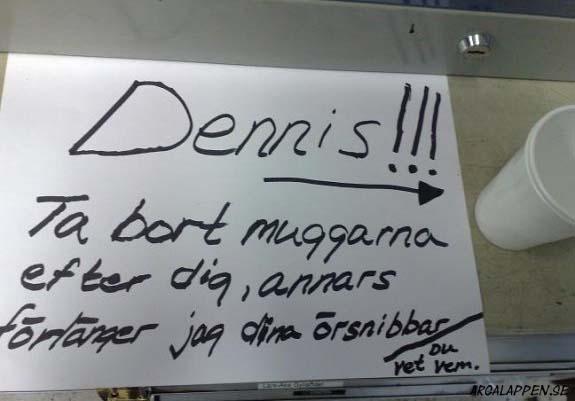 Dennis!!!
Ta bort muggarna
efter dig, annars
förlänger jag dina örsnibbar
Du
vet vem.
ARGALAPPEN.SE